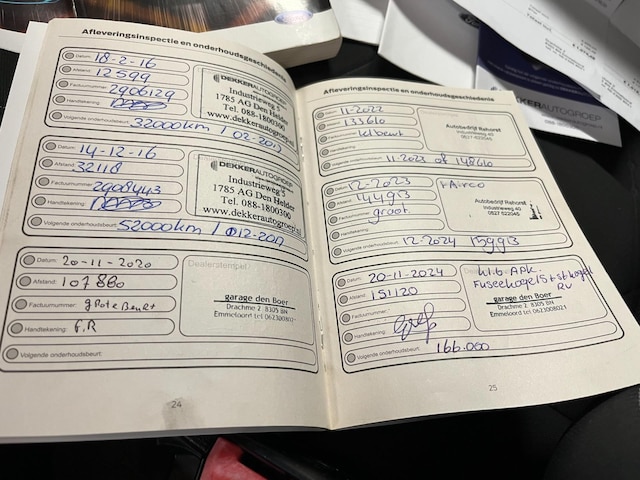 Afleveringsinspectie en onderhoudsgeschiedenis
Datum: 18-2-16
Afstand: 12599
Factuurnummer: 2906129
Handtekening:
Volgende onderhoudsbeurt: 32000km / 02-2017
DEKKERAUTOGROEP
Industrieweg 5
1785 AG Den Helder
Tel. 088-1800300
www.dekkerautogroep.nl
Datum: 14-12-16
Afstand: 32118
Factuurnummer: 2908443
Handtekening:
Volgende onderhoudsbeurt: 52000km / 12-2017
DEKKERAUTOGROEP
Industrieweg 5
1785 AG Den Helder
Tel. 088-1800300
www.dekkerautogroep.nl
Datum: 20-11-2020
Afstand: 107880
Factuurnummer: grote Beurt
Handtekening: F.R
Volgende onderhoudsbeurt:
Dealerstempel:
garage den Boer
Drachme 2 8305 BN
Emmeloord tel 0623008021
24
Afleveringsinspectie en onderhoudsgeschiedenis
Datum: 11-2022
Afstand: 133610
Factuurnummer: kl beurt
Handtekening:
Volgende onderhoudsbeurt: 11-2023 of 148610
Autobedrijf Rahorst
Industrieweg 40
Datum: 12-2023
Afstand: 144993
Factuurnummer: groot
Handtekening:
Volgende onderhoudsbeurt: 12-2024 159993
+ Airco
Autobedrijf Rahorst
Industrieweg 40
0527 622045
Datum: 20-11-2024
Afstand: 151120
Factuurnummer:
Handtekening:
Volgende onderhoudsbeurt: 166.000
kl.b. APK.
Fuseekogels + st kogel
RV
garage den Boer
Drachme 2 8305 BN
Emmeloord tel 0623008021
25
DEKKERAUTOGROEP